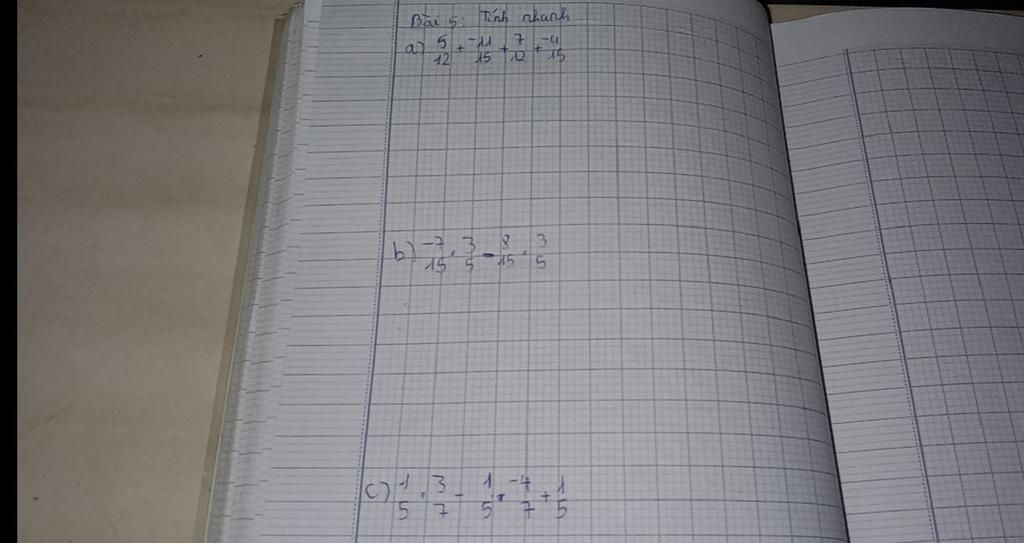 Bài 5: Tính nhanh
a) 5/12 + -11/15 + 7/12 + -4/15
b) -7/15 . 3/5 - 8/15 . 3/5
c) 1/5 . 3/7 - 1/5 . -4/7 + 1/5